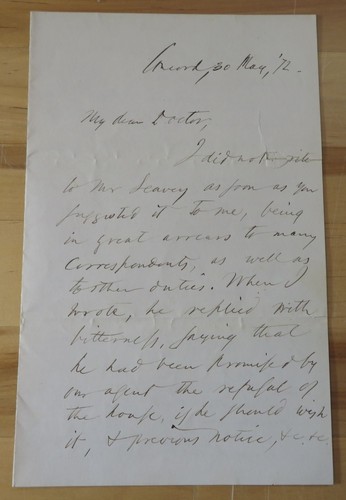 Concord, 30 May, '72.
My dear Doctor,
I did not write
to Mr Seavey as soon as you
suggested it to me, being
in great arrears to many
correspondents, as well as
to other duties. When I
wrote, he replied with
bitterness, saying that
he had been promised by
our agent the refusal of
the house, if he should wish
it, & previous notice, &c. &c.